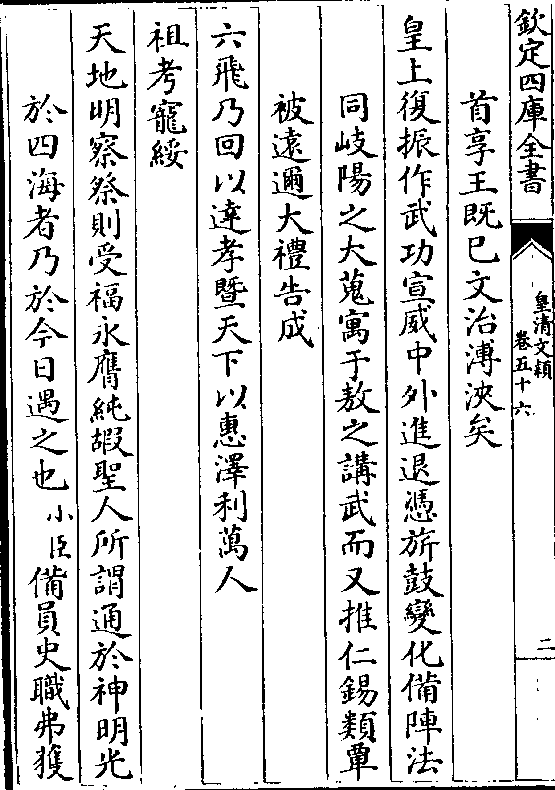 欽定四庫全書
皇清文穎
卷五十六
二
首享王既已文治溥浹矣
皇上復振作武功宣威中外進退憑旂鼓變化備陣法
同岐陽之大蒐寓于敖之講武而又推仁錫類覃
被遠邇大禮告成
六飛乃回以達孝暨天下以惠澤利萬人
祖考寵綏
天地明察祭則受福永膺純嘏聖人所謂通於神明光
於四海者乃於今日遇之也小臣備員史職弗獲